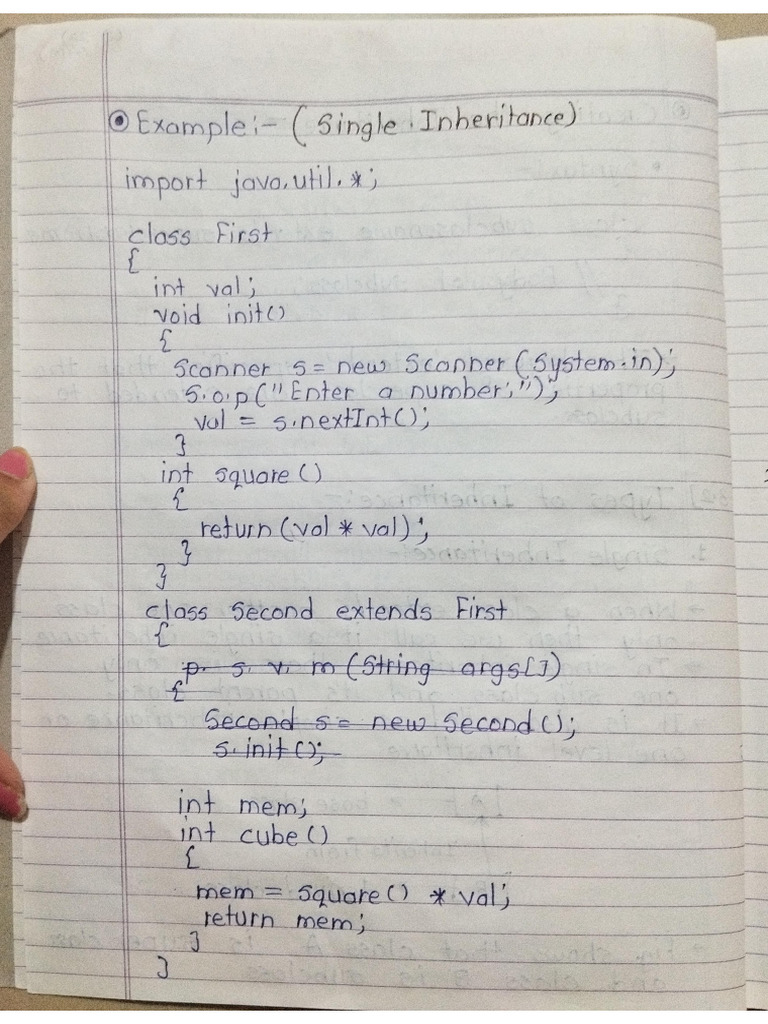 Example:- (Single Inheritance)
import java.util.*;
class First
{
int val;
void init()
{
Scanner s = new Scanner(System.in);
S.o.p("Enter a number:");
val = s.nextInt();
}
int square()
{
return(val * val);
}
}
class Second extends First
{
p. s. v. m (String args[])
{
Second s = new Second();
s.init();
int mem;
int cube()
{
mem = square() * val;
return mem;
}
}